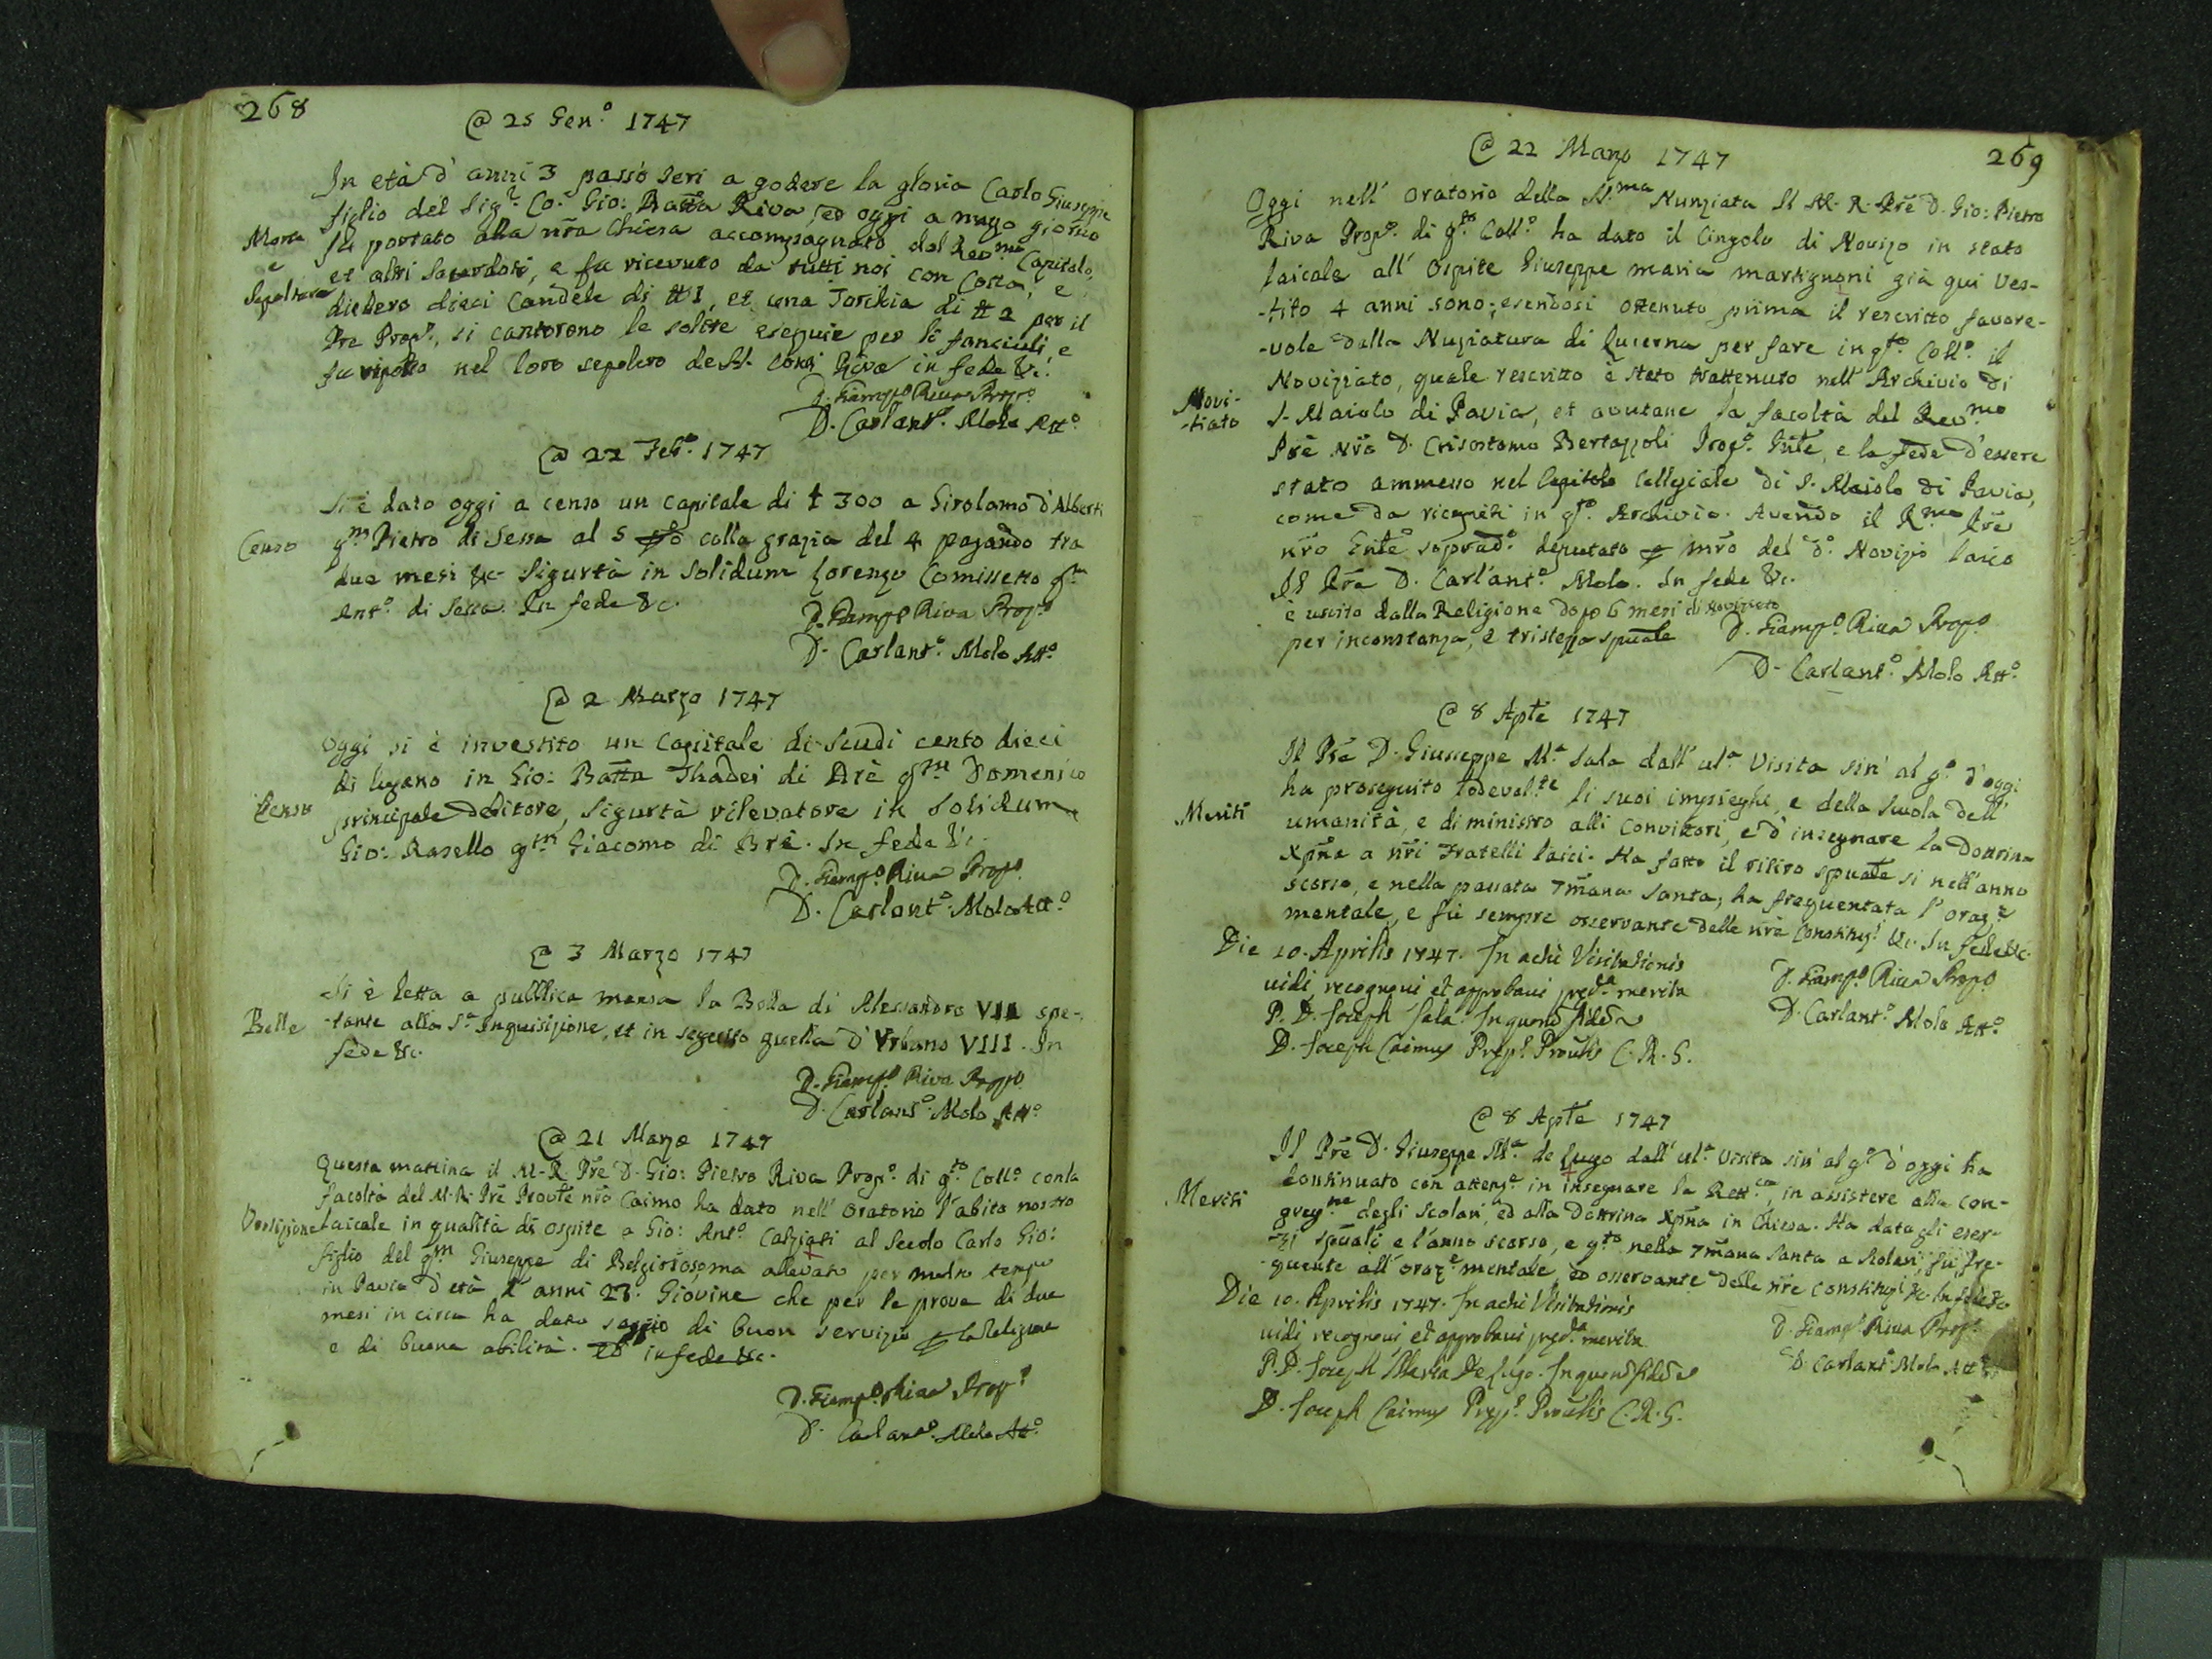 268
@ 25 Gen.º 1747
In età d'anni 3 passò ieri a godere la gloria Carlo Giuseppe
figlio del Sig.r Co. Gio: Batta Riva, ed oggi a mezo giorno
Morte e Sepoltura
fu portato alla nr̃a Chiesa accompagnato dal Rev.mo Capitolo,
et altri Sacerdoti, e fu ricevuto da tutti noi con Cotta, e
diedero dieci Candele di ℔ 1, et una Torchia di ℔ 2 per il
Pre Prop.º, si cantorono le solite esequie per li fanciuli, e
fu riposto nel loro sepolcro de SS. Conti Riva in fede &c.
D. Giamp.º Riva Prop.º
D. Carlant.º Molo Att.º
@ 22 Feb.º 1747
Si è dato oggi a censo un capitale di ŧ 300 a Girolamo d'Alberti
Censo
q.m Pietro di Sessa al 5 p̱ º colla grazia del 4 pagando tra
due mesi &c. Sigurtà in solidum Lorenzo Comissetto q.m
Ant.º di Sessa. In fede &c.
D. Giamp.º Riva Prop.º
D. Carlant.º Molo Att.º
@ 2 Marzo 1747
Oggi si è investito un Capitale di Scudi cento dieci
di lugano in Gio: Batta Thadei di Brè q.m Domenico
Censo
principale debitore, Sigurtà rilevatore in solidum
Gio: Rasello q.m Giacomo di Brè. In fede &c.
D. Giamp.º Riva Prop.º
D. Carlant.º Molo Att.º
@ 3 Marzo 1747
Si è letta a pubblica mensa la Bolla di Alessandro VII spe-
Bolle
-tante alla S.a Inquisizione, et in seguito quella d'Urbano VIII. In
fede &c.
D. Giamp.º Riva Prop.º
D. Carlant.º Molo Att.º
@ 21 Marzo 1747
Questa mattina il M. R. Prẽ D. Gio: Pietro Riva Prop.º di q.to Coll.º con la
facoltà del M. R. Prẽ Provle nr̃o Caimo ha dato nell'Oratorio l'abito nostro
Vestizione
laicale in qualità di ospite a Gio: Ant.º Calziati al Secolo Carlo Gio:
figlio del q.m Giuseppe di Belgioiosoma allevato per molto tempo
in Pavia d'età d'anni 23. Giovine che per le prove di due
mesi in circa ha dato saggio di buon servizio p̱ la Religione
e di buona abilità. In fede &c.
D. Giamp.º Riva Prop.º
D. Carlant.º Molo Att.º
269
@ 22 Marzo 1747
Oggi nell'Oratorio della SS.ma Nunziata Il M. R. Prẽ D. Gio: Pietro
Riva Prop.º di q.to Coll.º ha dato il Cingolo di Novizo in stato
laicale all'Ospite Giuseppe maria martignoni già qui Ves-
-tito 4 anni sono; esendosi ottenuto prima il rescritto favore-
-vole dalla Nuziatura di Lucerna per fare in q.to Coll.º il
Novi-
-tiato
Noviziato, quale rescritto è stato trattenuto nell'Archivio di
S. Maiolo di Pavia, et avutane la facoltà del Rev.mo
Prẽ Nrõ D. Crisostomo Bertazzoli Prop.º Gñle, e la fede d'essere
stato ammesso nel Capitolo Collegiale di S. Maiolo di Pavia,
come da ricapiti in q.to Archivio. Avendo il R.mo Prẽ
nrõ Gñle soprad.º deputato p̱ mrõ del d.º Novizo laico
Il Prẽ D. Carl'ant.º Molo. In fede &c.
è uscito dalla Religione dopo 6 mesi di noviziato
per inconstanza, e tristezza spũale
D. Giamp.º Riva Prop.º
D. Carlant.º Molo Att.º
@ 8 Aple 1747
Il Prẽ D. Giuseppe M.a Sala dall'ul.a Visita sin'al g.º d'oggi
ha proseguito lodevol.te li suoi impieghi, e della Scuola dell'
Meriti
umanità, e di ministro alli Convittori, e d'insegnare la Dottrina
Xpña a nrĩ Fratelli laici. Ha fatto il ritiro spũale si nell'anno
scorso, e nella passata 7mãna Santa; ha frequentata l'oraz.e
mentale, e fù sempre osservante delle nrẽ Constituz.i &c. In fede &c.
Die 10. Aprilis 1747. In actu Visitationis
vidi, recognovi et approbavi præd.ta merita
P. D. Joseph Sala. In quorum fidem
D. Joseph Caimus Prep.s Provlis C. R. S.
D. Giamp.º Riva Prop.º
D. Carlant.º Molo Att.º
@ 8 Aple 1747
Il Prẽ D. Giuseppe M.a de Lugo dall'ul.a Visita sin'al g.º d'oggi ha
continuato con attenz.e in insegnare la Rett.ca, in assistere alla Con-
Meriti
greg.ne degli Scolari, ed alla Dottrina Xpña in Chiesa. Ha dato gli eser-
-zi spũali e l'anno scorso, e q.to nella 7mãna Santa a Scolari; fù fre-
-quente all'oraz.e mentale, ed osservante delle nrẽ Constituz.i &c. In fede &c.
Die 10. Aprilis 1747. In actu Visitationis
vidi recognovi et approbavi præd.ta merita
P. D. Joseph Maria De Lugo. In quorum fidem
D. Joseph Caimus Prep.s Provlis C. R. S.
D. Giamp.º Riva Prop.º
D. Carlant.º Molo Att.º